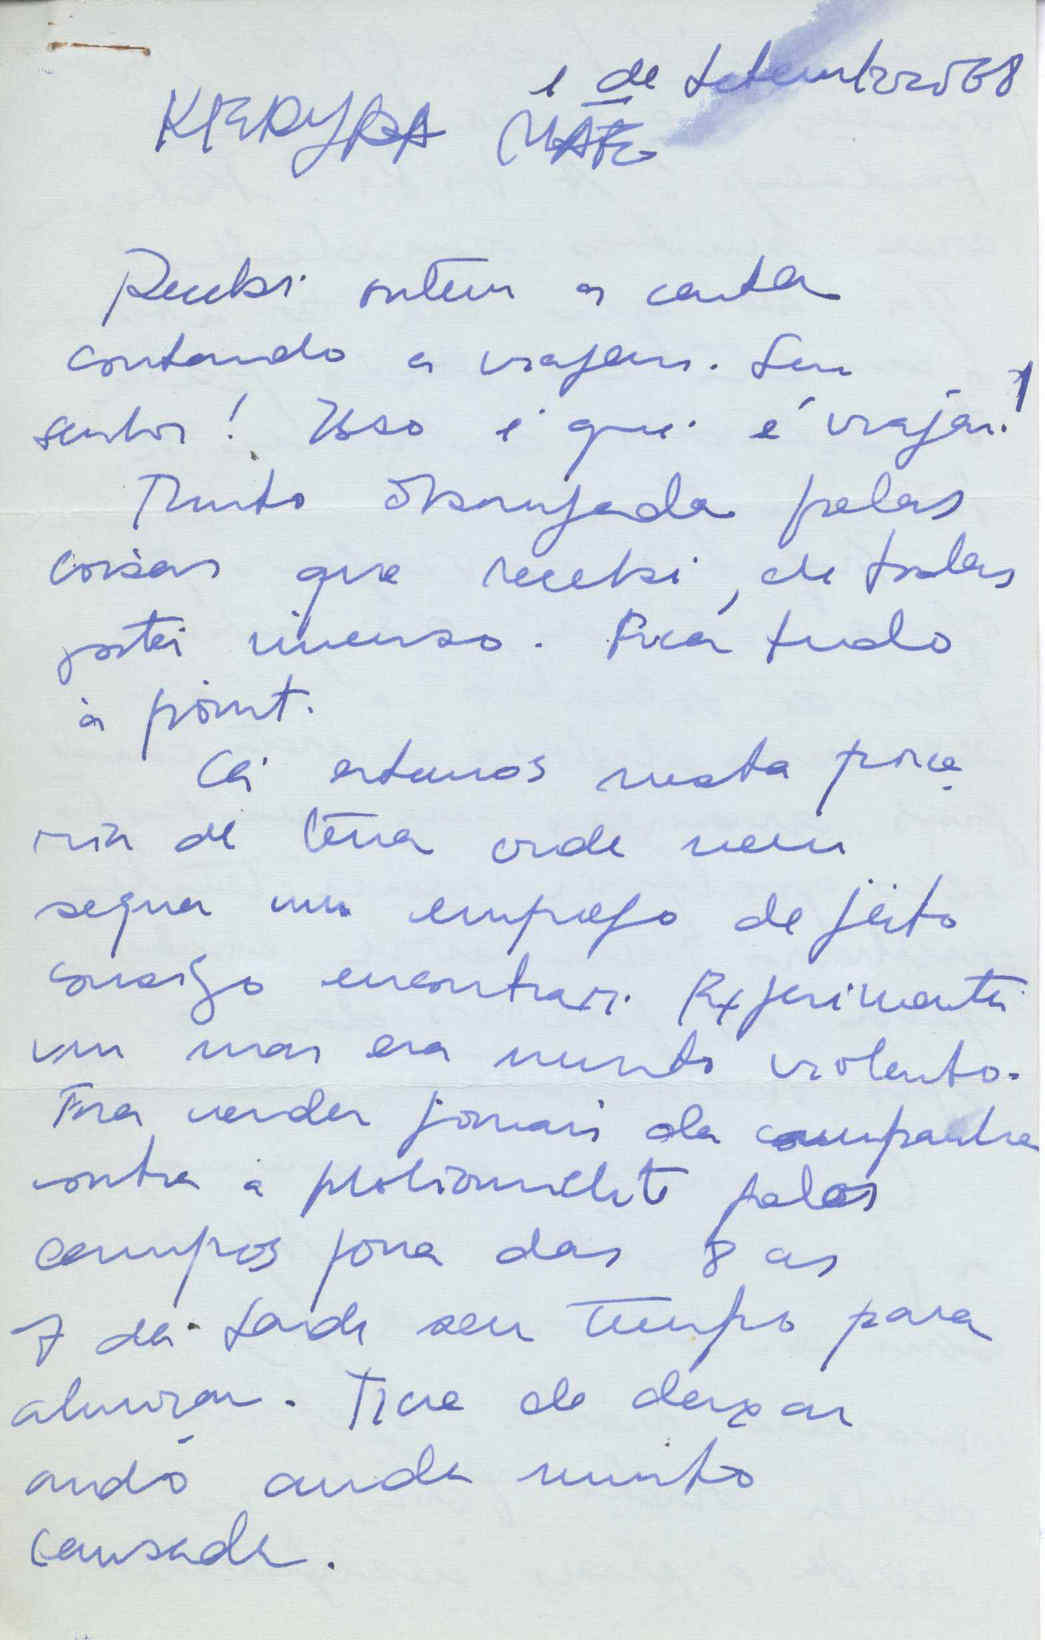 1 de Setembro 68
Recebi ontem a carta
contando a viagem. Sim
senhor! Isso é que é viajar!
Muito obrigada pelas
coisas que recebi, de todas
gostei imenso. Ficá tudo
à point.
Cá estamos nesta porca
ria de terra onde nem
sequer um emprego de jeito
consigo encontrar. Experimentei
um mas era muito violento.
Era vender jornais da campanha
contra a poliomielite pelos
campos fora das 8 as
7 da tarde sem tempo para
almoçar. Tive de deixar
ando ainda muito
cansada.